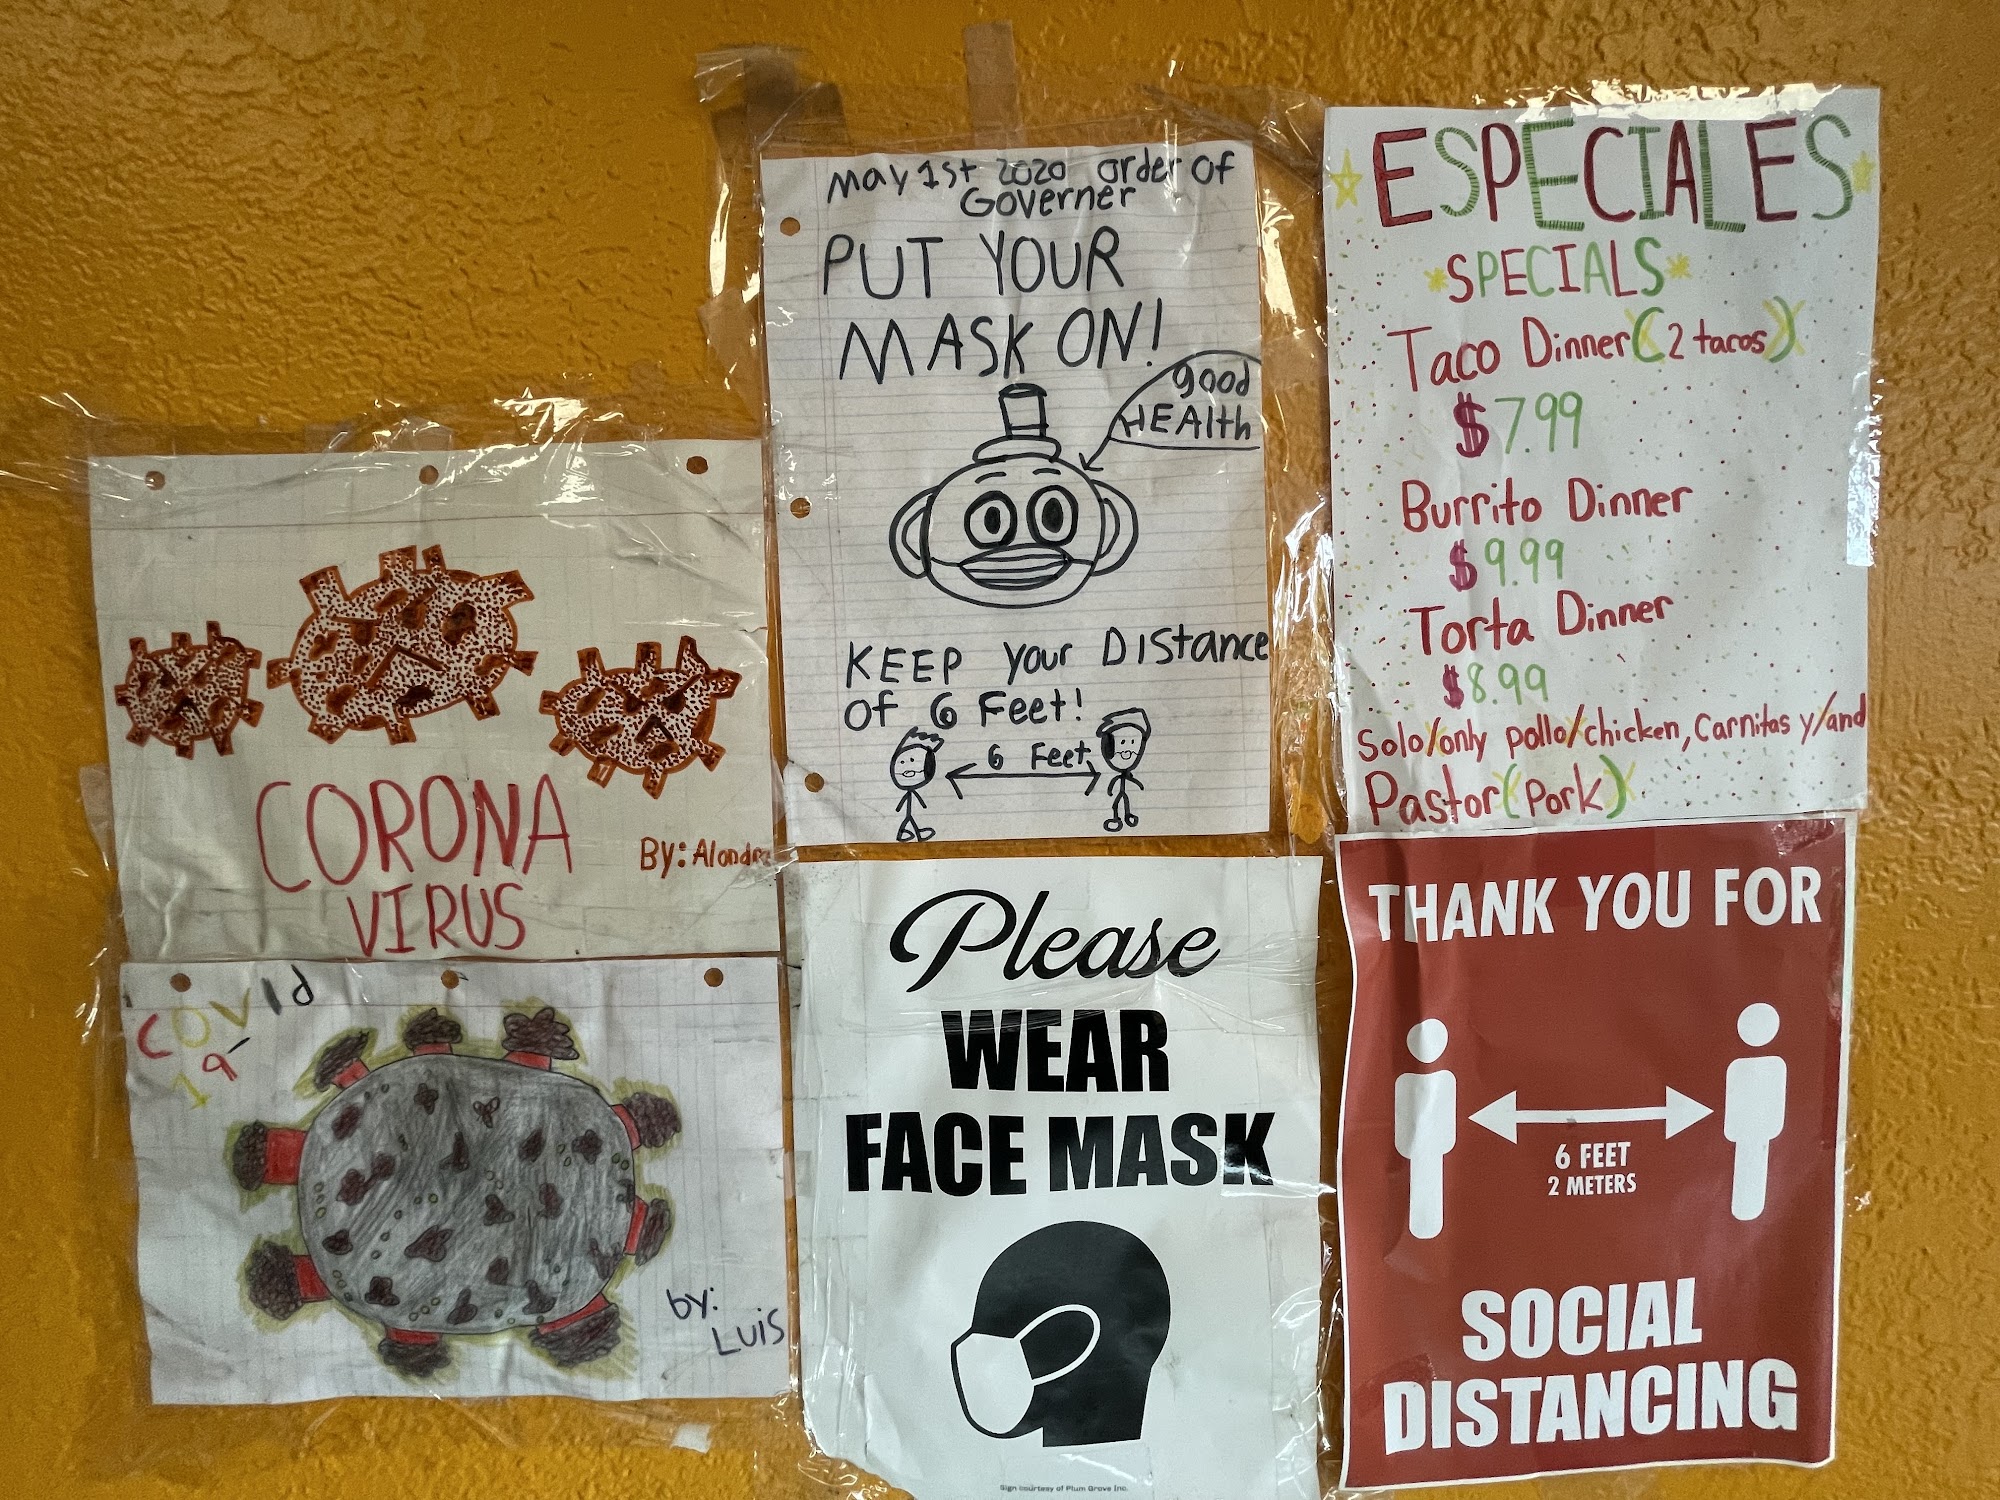 May 1st 2020 order of
Governer
PUT YOUR
MASK ON!
good
HEAlth
KEEP your DIStance
Of 6 Feet!
6 Feet
ESPECIALES
SPECIALS
Taco Dinner (2 tacos)
$7.99
Burrito Dinner
$9.99
Torta Dinner
$8.99
Solo/only pollo/chicken, Carnitas y/and
Pastor (Pork)
CORONA
VIRUS
By: Alondra
COVId
19
by:
LUIS
Please
WEAR
FACE MASK
Sign courtesy of Plum Grove Inc.
THANK YOU FOR
6 FEET
2 METERS
SOCIAL
DISTANCING